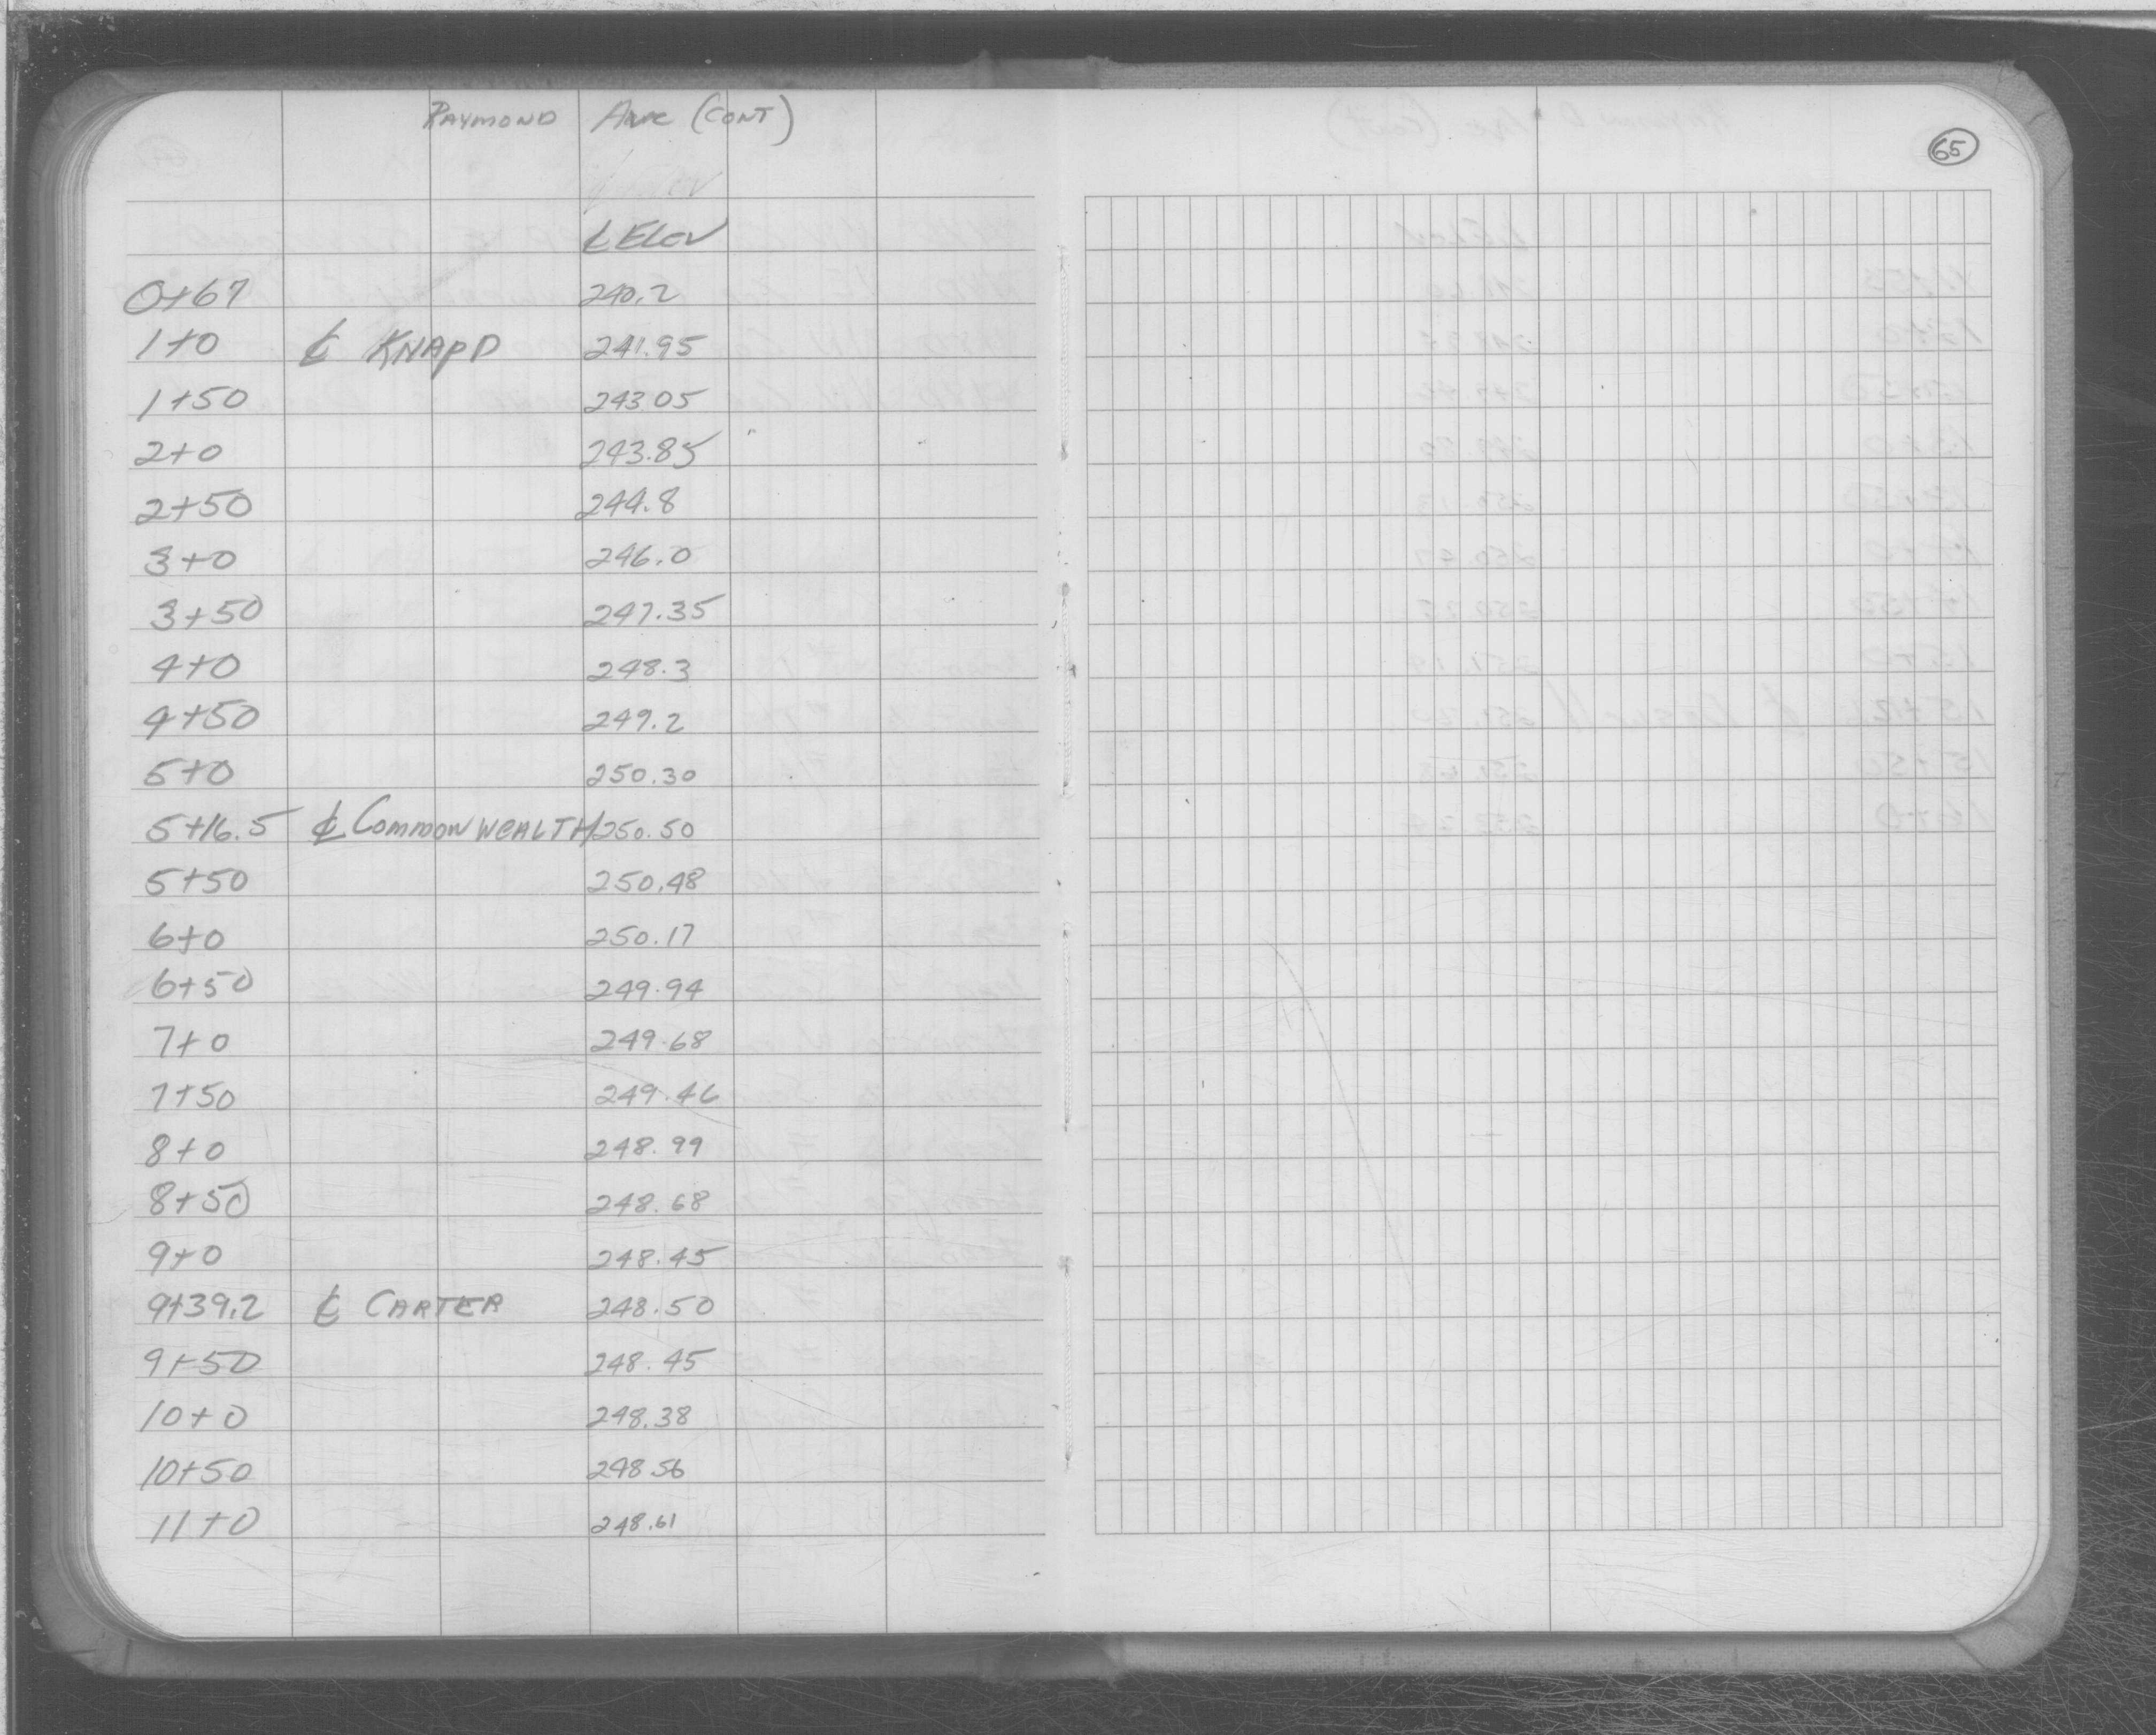 RAYMOND Ave (CONT)
65
℄ Elev
0+67 240.2
1+0 ℄ KNAPP 241.95
1+50 243.05
2+0 243.85
2+50 244.8
3+0 246.0
3+50 247.35
4+0 248.3
4+50 249.2
5+0 250.30
5+16.5 ℄ COMMONWEALTH 250.50
5+50 250.48
6+0 250.17
6+50 249.94
7+0 249.68
7+50 249.46
8+0 248.99
8+50 248.68
9+0 248.45
9+39.2 ℄ CARTER 248.50
9+50 248.45
10+0 248.38
10+50 248.56
11+0 248.61